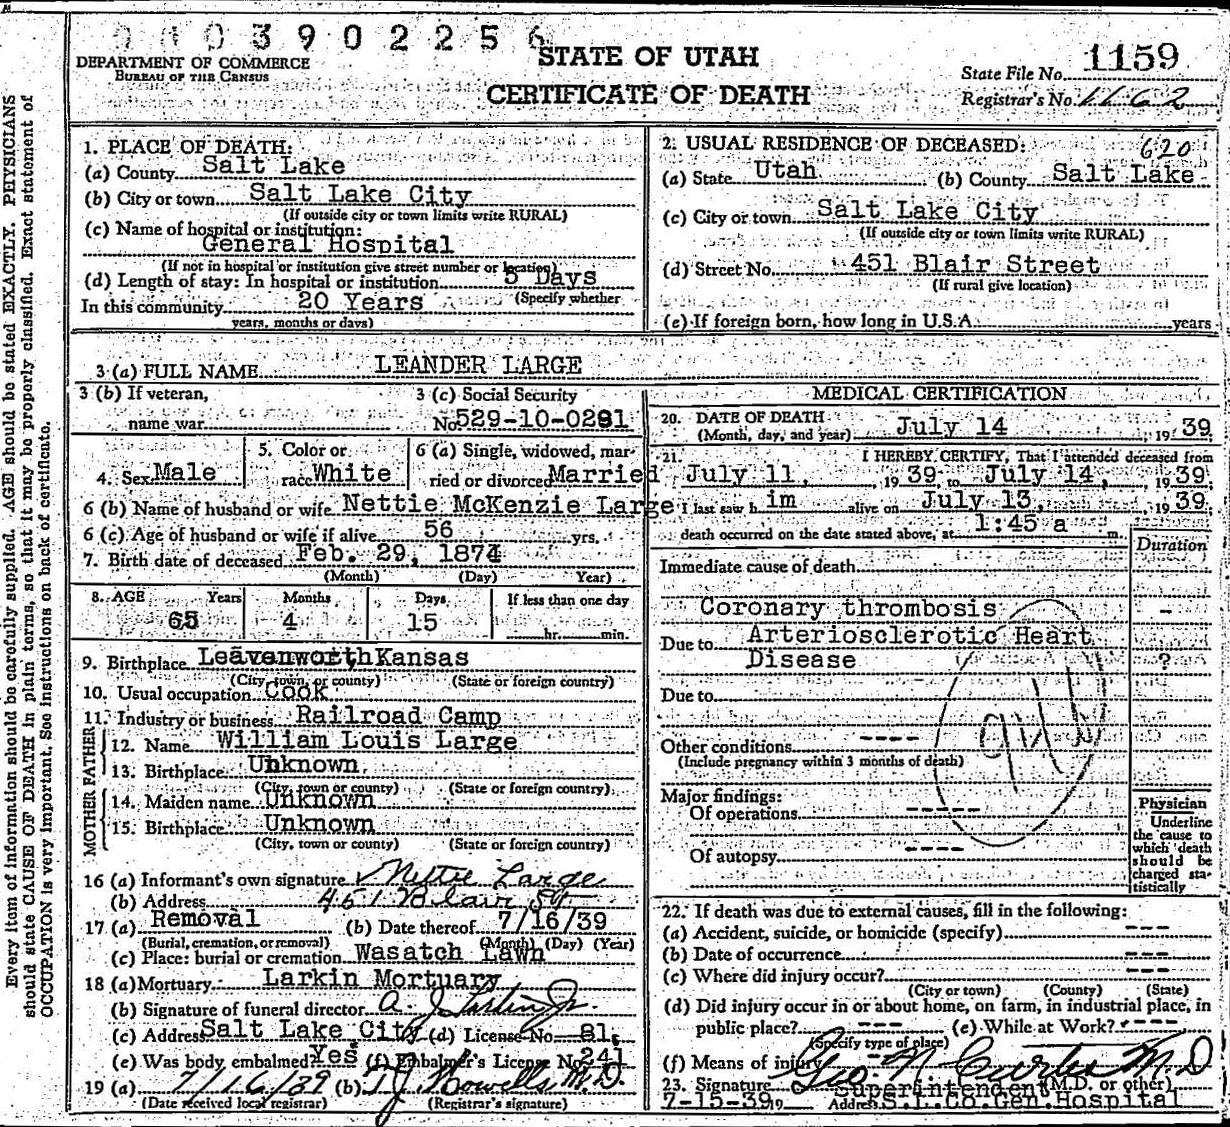 0003902256
DEPARTMENT OF COMMERCE
BUREAU OF THE CENSUS
STATE OF UTAH
CERTIFICATE OF DEATH
State File No. 1159
Registrar's No. 1162
Every item of information should be carefully supplied. AGE should be stated EXACTLY. PHYSICIANS
should state CAUSE OF DEATH in plain terms, so that it may be properly classified. Exact statement of
OCCUPATION is very important. See instructions on back of certificate.
1. PLACE OF DEATH:
(a) County Salt Lake
(b) City or town Salt Lake City
(If outside city or town limits write RURAL)
(c) Name of hospital or institution:
General Hospital
(If not in hospital or institution give street number or location)
(d) Length of stay: In hospital or institution 5 Days
In this community 20 Years (Specify whether
years, months or days)
2. USUAL RESIDENCE OF DECEASED: 620
(a) State Utah (b) County Salt Lake
(c) City or town Salt Lake City
(If outside city or town limits write RURAL)
(d) Street No. 451 Blair Street
(If rural give location)
(e) If foreign born, how long in U.S.A. years
3 (a) FULL NAME LEANDER LARGE
3 (b) If veteran,
name war
3 (c) Social Security
No. 529-10-0281
4. Sex Male
5. Color or
race White
6 (a) Single, widowed, mar-
ried or divorced Married
6 (b) Name of husband or wife Nettie McKenzie Large
6 (c) Age of husband or wife if alive 56 yrs.
7. Birth date of deceased Feb. 29, 1874
(Month) (Day) Year)
8. AGE Years Months Days If less than one day
65 4 15 hr. min.
9. Birthplace Leavenworth Kansas
(City, town, or county) (State or foreign country)
10. Usual occupation Cook
11. Industry or business Railroad Camp
FATHER
12. Name William Louis Large
13. Birthplace Unknown
(City, town or county) (State or foreign country)
MOTHER
14. Maiden name Unknown
15. Birthplace Unknown
(City, town or county) (State or foreign country)
16 (a) Informant's own signature Nettie Large
(b) Address 451 Blair St
17 (a) Removal (b) Date thereof 7/16/39
(Burial, cremation, or removal) (Month) (Day) (Year)
(c) Place: burial or cremation Wasatch Lawn
18 (a) Mortuary Larkin Mortuary
(b) Signature of funeral director A. J. Larkin Jr.
(c) Address Salt Lake City (d) License No. 81
(e) Was body embalmed? Yes (f) Embalmer's License No. 241
19 (a) 7/16/39 (b) T J Howells M.D.
(Date received local registrar) (Registrar's signature)
MEDICAL CERTIFICATION
20. DATE OF DEATH
(Month, day, and year) July 14, 1939
21. I HEREBY CERTIFY, That I attended deceased from
July 11, 1939, to July 14, 1939.
I last saw him alive on July 13, 1939.
death occurred on the date stated above, at 1:45 a m.
Duration
Immediate cause of death
Coronary thrombosis -
Due to Arteriosclerotic Heart
Disease ?
Due to
Other conditions ----
(Include pregnancy within 3 months of death)
Major findings:
Of operations -----
Of autopsy ----
Physician
Underline
the cause to
which death
should be
charged sta-
tistically
22. If death was due to external causes, fill in the following:
(a) Accident, suicide, or homicide (specify) ---
(b) Date of occurrence ---
(c) Where did injury occur? ---
(City or town) (County) (State)
(d) Did injury occur in or about home, on farm, in industrial place, in
public place? --- (e) While at Work? ---
(Specify type of place)
(f) Means of injury ---
23. Signature Geo. N. Curtis M.D.
Superintendent (M.D. or other)
7-15-39 19 Address S.L.Co.Gen.Hospital